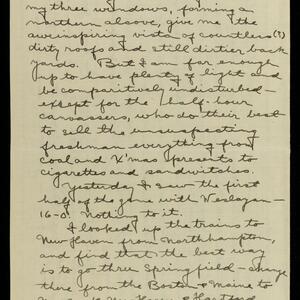 my three windows, forming a
northern alcove, give me the
aweinspiring vista of countless (?)
dirty roofs and still dirtier back
yards. But I am far enough
up to have plenty of light and
be comparitively undisturbed -
except for the half-hour
canvassers, who do their best
to sell the unsuspecting
freshman everything from
coal and X'mas presents to
cigarettes and sandwitches.
Yesterday I saw the first
half of the game with Wesleyan -
16-0. Nothing to it.
I looked up the trains to
New Haven from Northhampton,
and find that the best way
is to go three Springfield - change
there from the Boston & Maine to
New Haven & Hartford